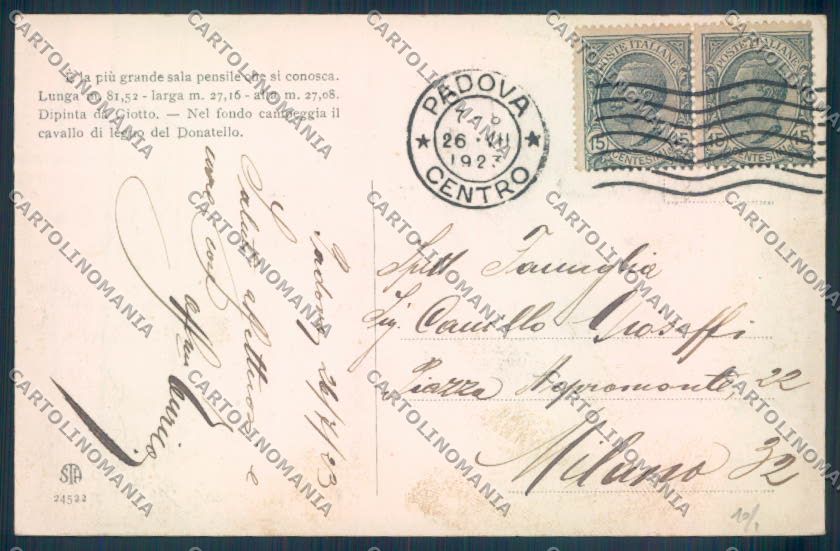 È la più grande sala pensile che si conosca.
Lunga m. 81,52 - larga m. 27,16 - alta m. 27,08.
Dipinta da Giotto. — Nel fondo campeggia il
cavallo di legno del Donatello.
PADOVA
26 VII
1923
CENTRO
POSTE ITALIANE
15 15
CENTESIMI
POSTE ITALIANE
15 15
CENTESIMI
Padova 26/7/23
Saluti affettuosi e
Spett Famiglia
Sig. Camillo Gioseffi
Piazza Aspromonte, 22
Milano 32
STA
24522
CARTOLINOMANIA